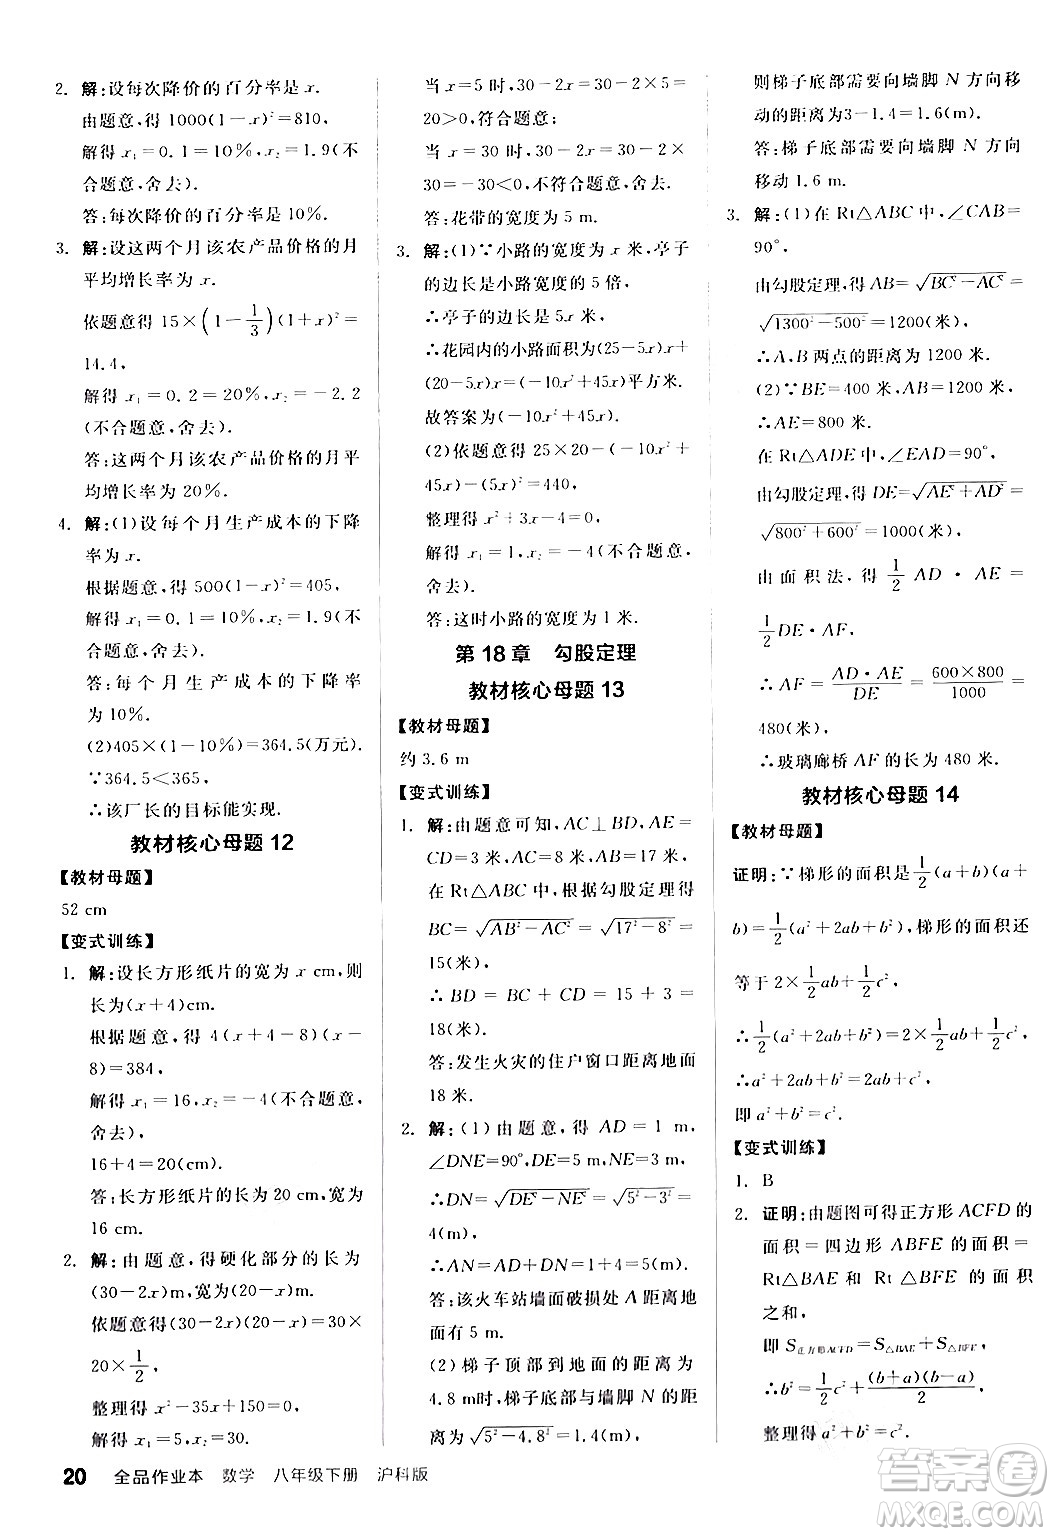 2. 解:设每次降价的百分率是 x.
由题意,得 1000(1-x)²=810,
解得 x₁=0.1=10%,x₂=1.9(不
合题意,舍去).
答:每次降价的百分率是 10%.
3. 解:设这两个月该农产品价格的月
平均增长率为 x.
依题意得 15×(1-1/3)(1+x)²=
14.4,
解得 x₁=0.2=20%,x₂=-2.2
(不合题意,舍去).
答:这两个月该农产品价格的月平
均增长率为 20%.
4. 解:(1)设每个月生产成本的下降
率为 x.
根据题意,得 500(1-x)²=405,
解得 x₁=0.1=10%,x₂=1.9(不
合题意,舍去).
答:每个月生产成本的下降率
为 10%.
(2)405×(1-10%)=364.5(万元).
∵364.5<365,
∴该厂长的目标能实现.
教材核心母题 12
【教材母题】
52 cm
【变式训练】
1. 解:设长方形纸片的宽为 x cm,则
长为(x+4)cm.
根据题意,得 4(x+4-8)(x-
8)=384,
解得 x₁=16,x₂=-4(不合题意,
舍去),
16+4=20(cm).
答:长方形纸片的长为 20 cm,宽为
16 cm.
2. 解:由题意,得硬化部分的长为
(30-2x)m,宽为(20-2x)m.
依题意得(30-2x)(20-2x)=30×
20×1/2,
整理得 x²-35x+150=0,
解得 x₁=5,x₂=30.
当 x=5 时,30-2x=20,20-2×5=
20>0,符合题意;
当 x=30 时,30-2x=30-2×
30=-30<0,不符合题意,舍去.
答:花带的宽度为 5 m.
3. 解:(1)∵小路的宽度为 x 米,亭子
的边长是小路宽度的 5 倍,
∴亭子的边长为 5x 米,
∴花园内的小路面积为(25-5x)x+
(20-5x)x=(-10x²+45x)平方米.
故答案为(-10x²+45x).
(2)依题意得 25×20-(-10x²+
45x)-(5x)²=440,
整理得 x²+3x-4=0,
解得 x₁=1,x₂=-4(不合题意,
舍去).
答:这时小路的宽度为 1 米.
第 18 章 勾股定理
教材核心母题 13
【教材母题】
约 3.6 m
【变式训练】
1. 解:由题意可知,AC⊥BD,AE=
CD=3 米,AC=8 米,AB=17 米,
在 Rt△ABC 中,根据勾股定理得
BC=√(AB²-AC²)=√(17²-8²)=
15(米),
∴BD=BC+CD=15+3=
18(米).
答:发生火灾的住户窗口距离地面
18 米.
2. 解:(1)由题意,得 AD=1 m,
∠DNE=90°,DE=5 m,NE=3 m,
∴DN=√(DE²-NE²)=√(5²-3²)=
4(m),
∴AN=AD+DN=1+4=5(m).
答:该火车站墙面破损处 A 距离地
面有 5 m.
(2)梯子顶部到地面的距离为
4.8 m时,梯子底部与墙脚 N 的距
离为√(5²-4.8²)=1.4(m),
则梯子底部需要向墙脚 N 方向移
动的距离为3-1.4=1.6(m).
答:梯子底部需要向墙脚 N 方向
移动 1.6 m.
3. 解:(1)在 Rt△ABC 中,∠CAB=
90°,
由勾股定理,得 AB=√(BC²-AC²)=
√(1300²-500²)=1200(米),
∴A,B 两点的距离为 1200 米.
(2)∵BE=400 米,AB=1200 米,
∴AE=800 米,
在 Rt△ADE 中,∠EAD=90°,
由勾股定理,得 DE=√(AE²+AD²)=
√(800²+600²)=1000(米),
由面积法,得 1/2 AD·AE=
1/2 DE·AF,
∴AF=AD·AE/DE=600×800/1000=
480(米),
∴玻璃廊桥 AF 的长为 480 米.
教材核心母题 14
【教材母题】
证明:∵梯形的面积是1/2(a+b)(a+
b)=1/2(a²+2ab+b²),梯形的面积还
等于 2×1/2ab+1/2c²,
∴1/2(a²+2ab+b²)=2×1/2ab+1/2c²,
∴a²+2ab+b²=2ab+c²,
即 a²+b²=c².
【变式训练】
1. B
2. 证明:由题图可得正方形 ACFD 的
面积=四边形 ABFE 的面积=
Rt△BAE 和 Rt△BFE 的面积
之和,
即 S正方形ACFD=S△BAE+S△BFE,
∴b²=1/2c²+(b+a)(b-a)/2,
整理得 a²+b²=c².
20 全品作业本 数学 八年级下册 沪科版
答案圈
MXQE.COM